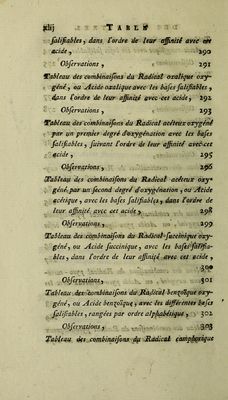 xlij TABLE
salifiables, dans l'ordre de leur affinité avec cet
acide, 290
Observations, 291
Tableau des combinaisons du Radical oxalique oxy-
géné, ou Acide oxalique avec les bases salifiables,
dans l'ordre de leur affinité avec cet acide, 292
Observations, 293
Tableau des combinaisons du Radical acéteux oxygéné
par un premier degré d'oxygénation avec les bases
salifiables, suivant l'ordre de leur affinité avec cet
acide, 295
Observations, 296
Tableau des combinaisons du Radical acéteux oxy-
géné par un second degré d'oxygénation, ou Acide
acétique, avec les bases salifiables, dans l'ordre de
leur affinité avec cet acide, 298
Observations, 299
Tableau des combinaisons du Radical succinique oxy-
géné, ou Acide succinique, avec les bases salifia-
bles, dans l'ordre de leur affinité avec cet acide,
300
Observations, 301
Tableau des combinaisons du Radical benzoïque oxy-
géné, ou Acide benzoïque, avec les différentes bases
salifiables, rangées par ordre alphabétique, 302
Observations, 303
Tableau des combinaisons du Radical camphorique